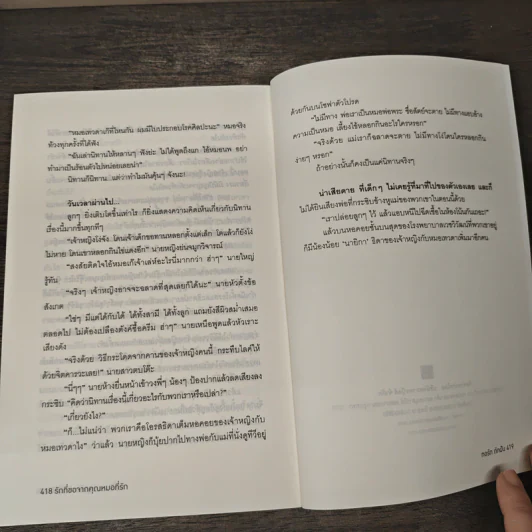 "หมอเทวดาเก๊ที่ไหนกัน ผมมีใบประกอบโรคศิลปะนะ" หมอจริง
ท้วงทุกครั้งที่ได้ฟัง
"ฉันเล่านิทานให้หลานๆ ฟังย่ะ ไม่ได้พูดถึงแก ไอ้หมอนพ อย่า
ทำมาเป็นร้อนตัวไปหน่อยเลยน่า"
นิทานก็นิทาน...แต่ว่าทำไมมันคุ้นๆ จังนะ!
วันเวลาผ่านไป...
ลูกๆ ยิ่งเติบโตขึ้นเท่าไร ก็ยิ่งแสดงความคิดเห็นเกี่ยวกับนิทาน
เรื่องนี้มากขึ้นทุกทีๆ
"เจ้าหญิงโง่จัง โดนเจ้าเด็กขอทานหลอกตั้งแต่เล็ก โตแล้วก็ยังโง่
ไม่หาย โดนเขาหลอกกินไข่แดงอีก" นายหญิงย่นจมูกวิจารณ์
"สงสัยติดใจไอ้หมอเก๊เจ้าเล่ห์อะไรนี่มากกว่า ฮ่าๆ" นายใหญ่
รู้ทัน
"จริงๆ เจ้าหญิงอาจจะฉลาดที่สุดเลยก็ได้นะ" นายหัวตั้งข้อ
สังเกต
"ใช่ๆ มีแต่ได้กับได้ ได้ทั้งสามี ได้ทั้งลูก แถมยังสีผิวสม่ำเสมอ
ตลอดไป ไม่ต้องเปลืองตังค์ซื้อครีม ฮ่าๆ" นายเหนือพูดแล้วหัวเราะ
เสียงดัง
"จริงด้วย วิธีกระโดดจากคานของเจ้าหญิงคนนี้ กระทืบไลค์ให้
ด้วยจิตคารวะเลย!" นายสาวตบโต๊ะ
"นี่ๆๆ" นายห้างยื่นหน้าเข้าวงพี่ๆ น้องๆ ป้องปากแล้วลดเสียงลง
กระซิบ "คิดว่านิทานเรื่องนี้เกี่ยวอะไรกับพวกเราหรือเปล่า?"
"เกี่ยวยังไง?"
"ก็...ไม่แน่ว่า พวกเราคือโอรสธิดาเต็มหอคอยของเจ้าหญิงกับ
หมอเทวดาไง" ว่าแล้ว นายหญิงก็บุ้ยปากไปทางพ่อกับแม่ที่นั่งดูทีวีอยู่
418 รักที่ขอจากคุณหมอที่รัก
ด้วยกันบนโซฟาตัวโปรด
"ไม่มีทาง พ่อเราเป็นหมอพ่อพระ ซื่อสัตย์จะตาย ไม่มีทางแอบอ้าง
ความเป็นหมอ เลี้ยงไข้หลอกกินอะไรใครหรอก"
"จริงด้วย แม่เราก็ฉลาดจะตาย ไม่มีทางโง่โดนใครหลอกกิน
ง่ายๆ หรอก"
ถ้าอย่างนั้นก็คงเป็นแค่นิทานจริงๆ
น่าเสียดาย ที่เด็กๆ ไม่เคยรู้ที่มาที่ไปของตัวเองเลย และก็
ไม่ได้ยินเสียงพ่อที่กระซิบข้างหูแม่ของพวกเขาในตอนนี้ด้วย
"เราปล่อยลูกๆ ไว้ แล้วแอบหนีไปฉีดเชื้อในห้องโน้นกันเถอะ!"
แล้วบนหอคอยชั้นบนสุดของโรงพยาบาลเขชีวัฒน์ที่พวกเขาอยู่
ก็มีน้องน้อย "นายิกา" ธิดาของเจ้าหญิงกับหมอเทวดาเพิ่มมาอีกคน
กอรัก ถักฝัน 419